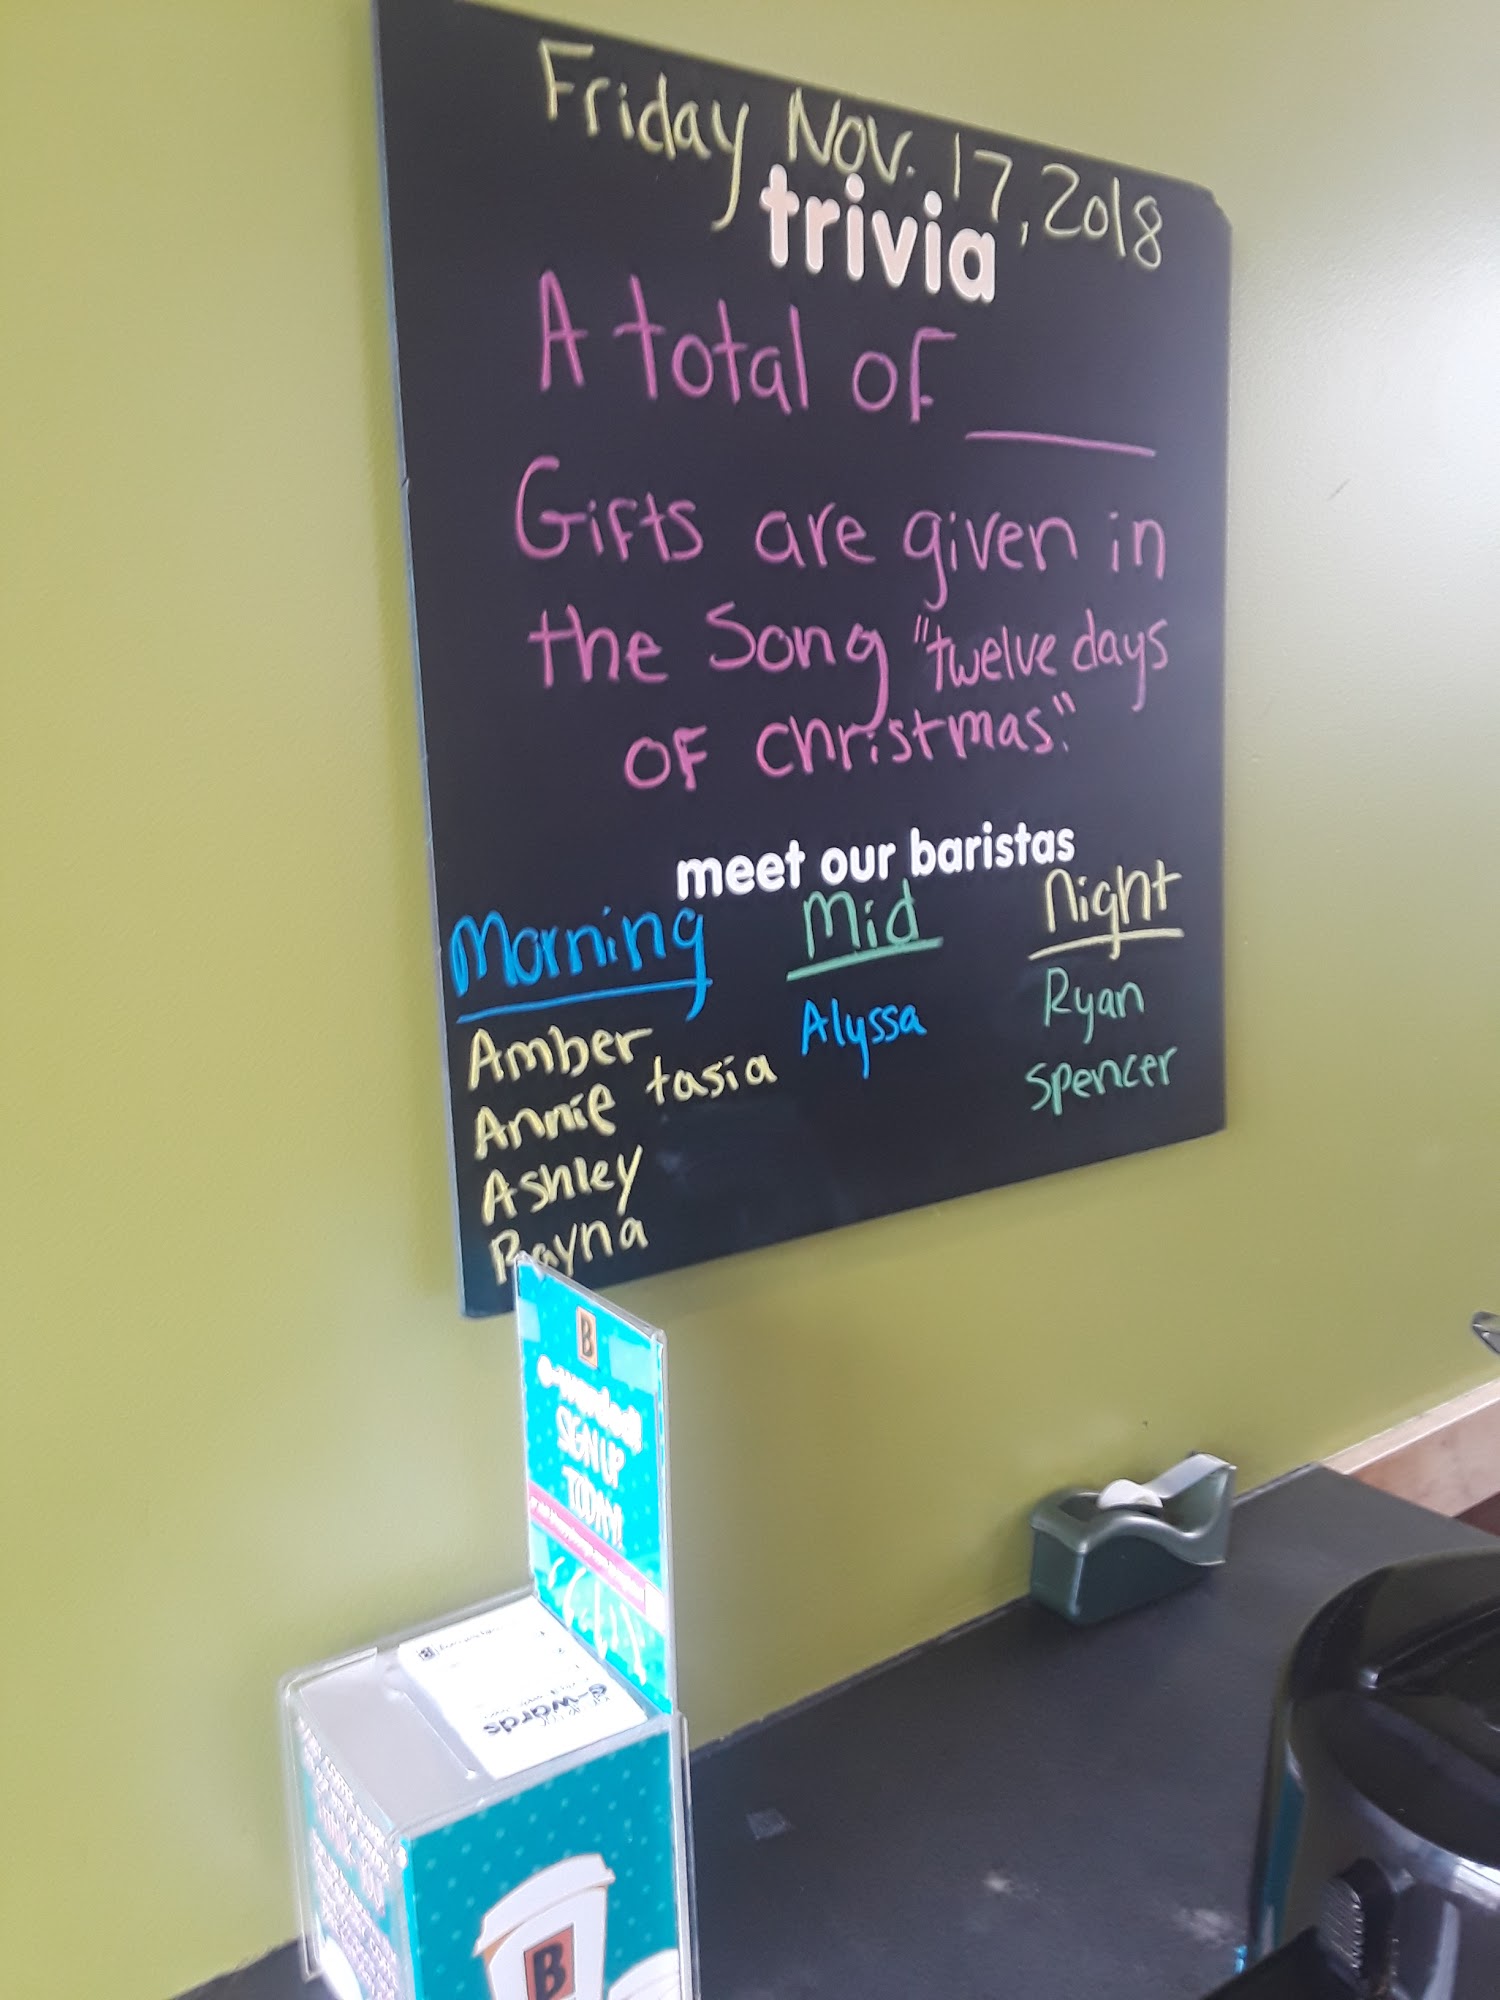 Friday Nov. 17, 2018
trivia
A total of ____
Gifts are given in
the Song "twelve days
of christmas."
meet our baristas
Morning Mid Night
Amber Alyssa Ryan
Annie tasia Spencer
Ashley
Rayna
B
e-wards
SIGN UP
TODAY!
e-wards
B